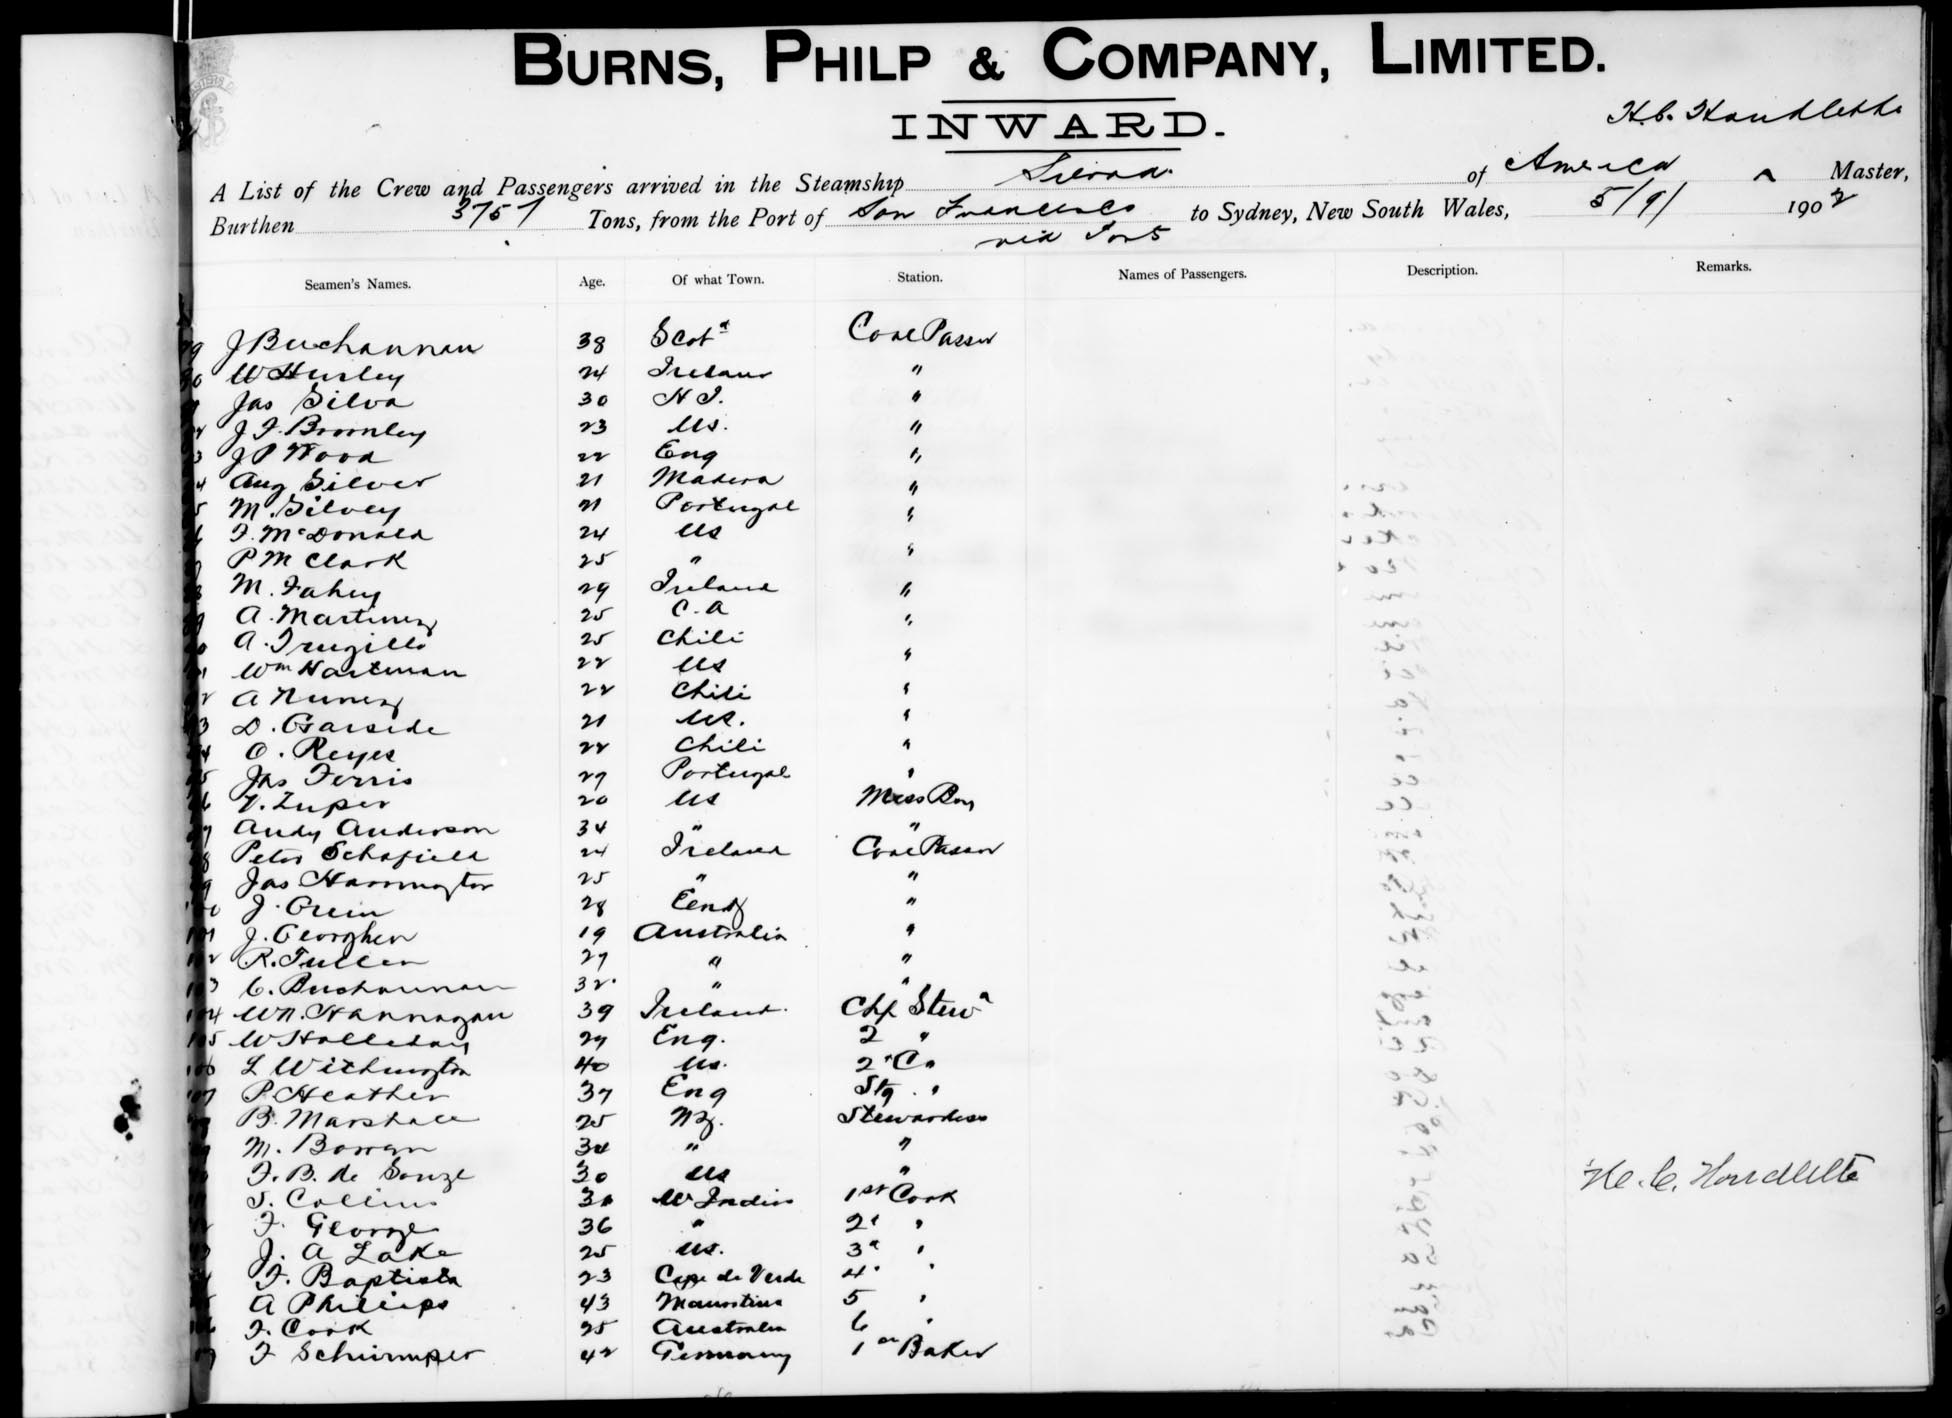 BURNS, PHILP & COMPANY, LIMITED.
INWARD.
H.C. Houdlette
A List of the Crew and Passengers arrived in the Steamship Sierra of America Master,
Burthen 3757 Tons, from the Port of San Francisco to Sydney, New South Wales, 5/9/ 1902
via Ports
Seamen's Names. Age. Of what Town. Station. Names of Passengers. Description. Remarks.
J Buchannan 38 Scotd Coal Passer
W Hurley 24 Ireland "
Jas Silva 30 H I. "
J F. Bromley 23 US. "
J P Wood 22 Eng "
Aug Silver 21 Madera "
M. Silvey 21 Portugal "
F. McDonald 24 US "
P M Clark 25 " "
M. Fahey 29 Ireland "
A. Martinez 25 C. A "
A. Trugillo 25 Chili "
Wm Hartman 22 US "
A Nunez 22 Chili "
D. Garside 21 US. "
O. Reyes 22 Chili "
Jas Ferris 27 Portugal "
V. Zuper 20 US Mess Boy
Andy Anderson 34 " "
Peter Schofield 24 Ireland Coal Passer
Jas Harrington 25 " "
100 J. Grein 28 Eng "
101 J. Georghen 19 Australia "
102 R. Fuller 27 " "
103 C. Buchannan 32 " "
104 Wm. Hannagan 39 Ireland Chf Stewd
105 W Halleday 29 Eng. 2 "
106 L Withington 40 US. 2d C "
107 P. Heather 37 Eng Stg. "
B. Marshall 25 NZ. Stewardess
M. Bowen 34 " "
F. B. de Souze 30 US "
S. Collins 30 W Indies 1st Cook
F. George 36 " 2d "
J. A Lake 25 US. 3d "
F. Baptista 23 Cape de Verde 4 "
A Phillips 43 Mauritius 5 "
F. Cook 25 Australia 6 "
F Schirmper 42 Germany 1st Baker
H. C. Houdlette